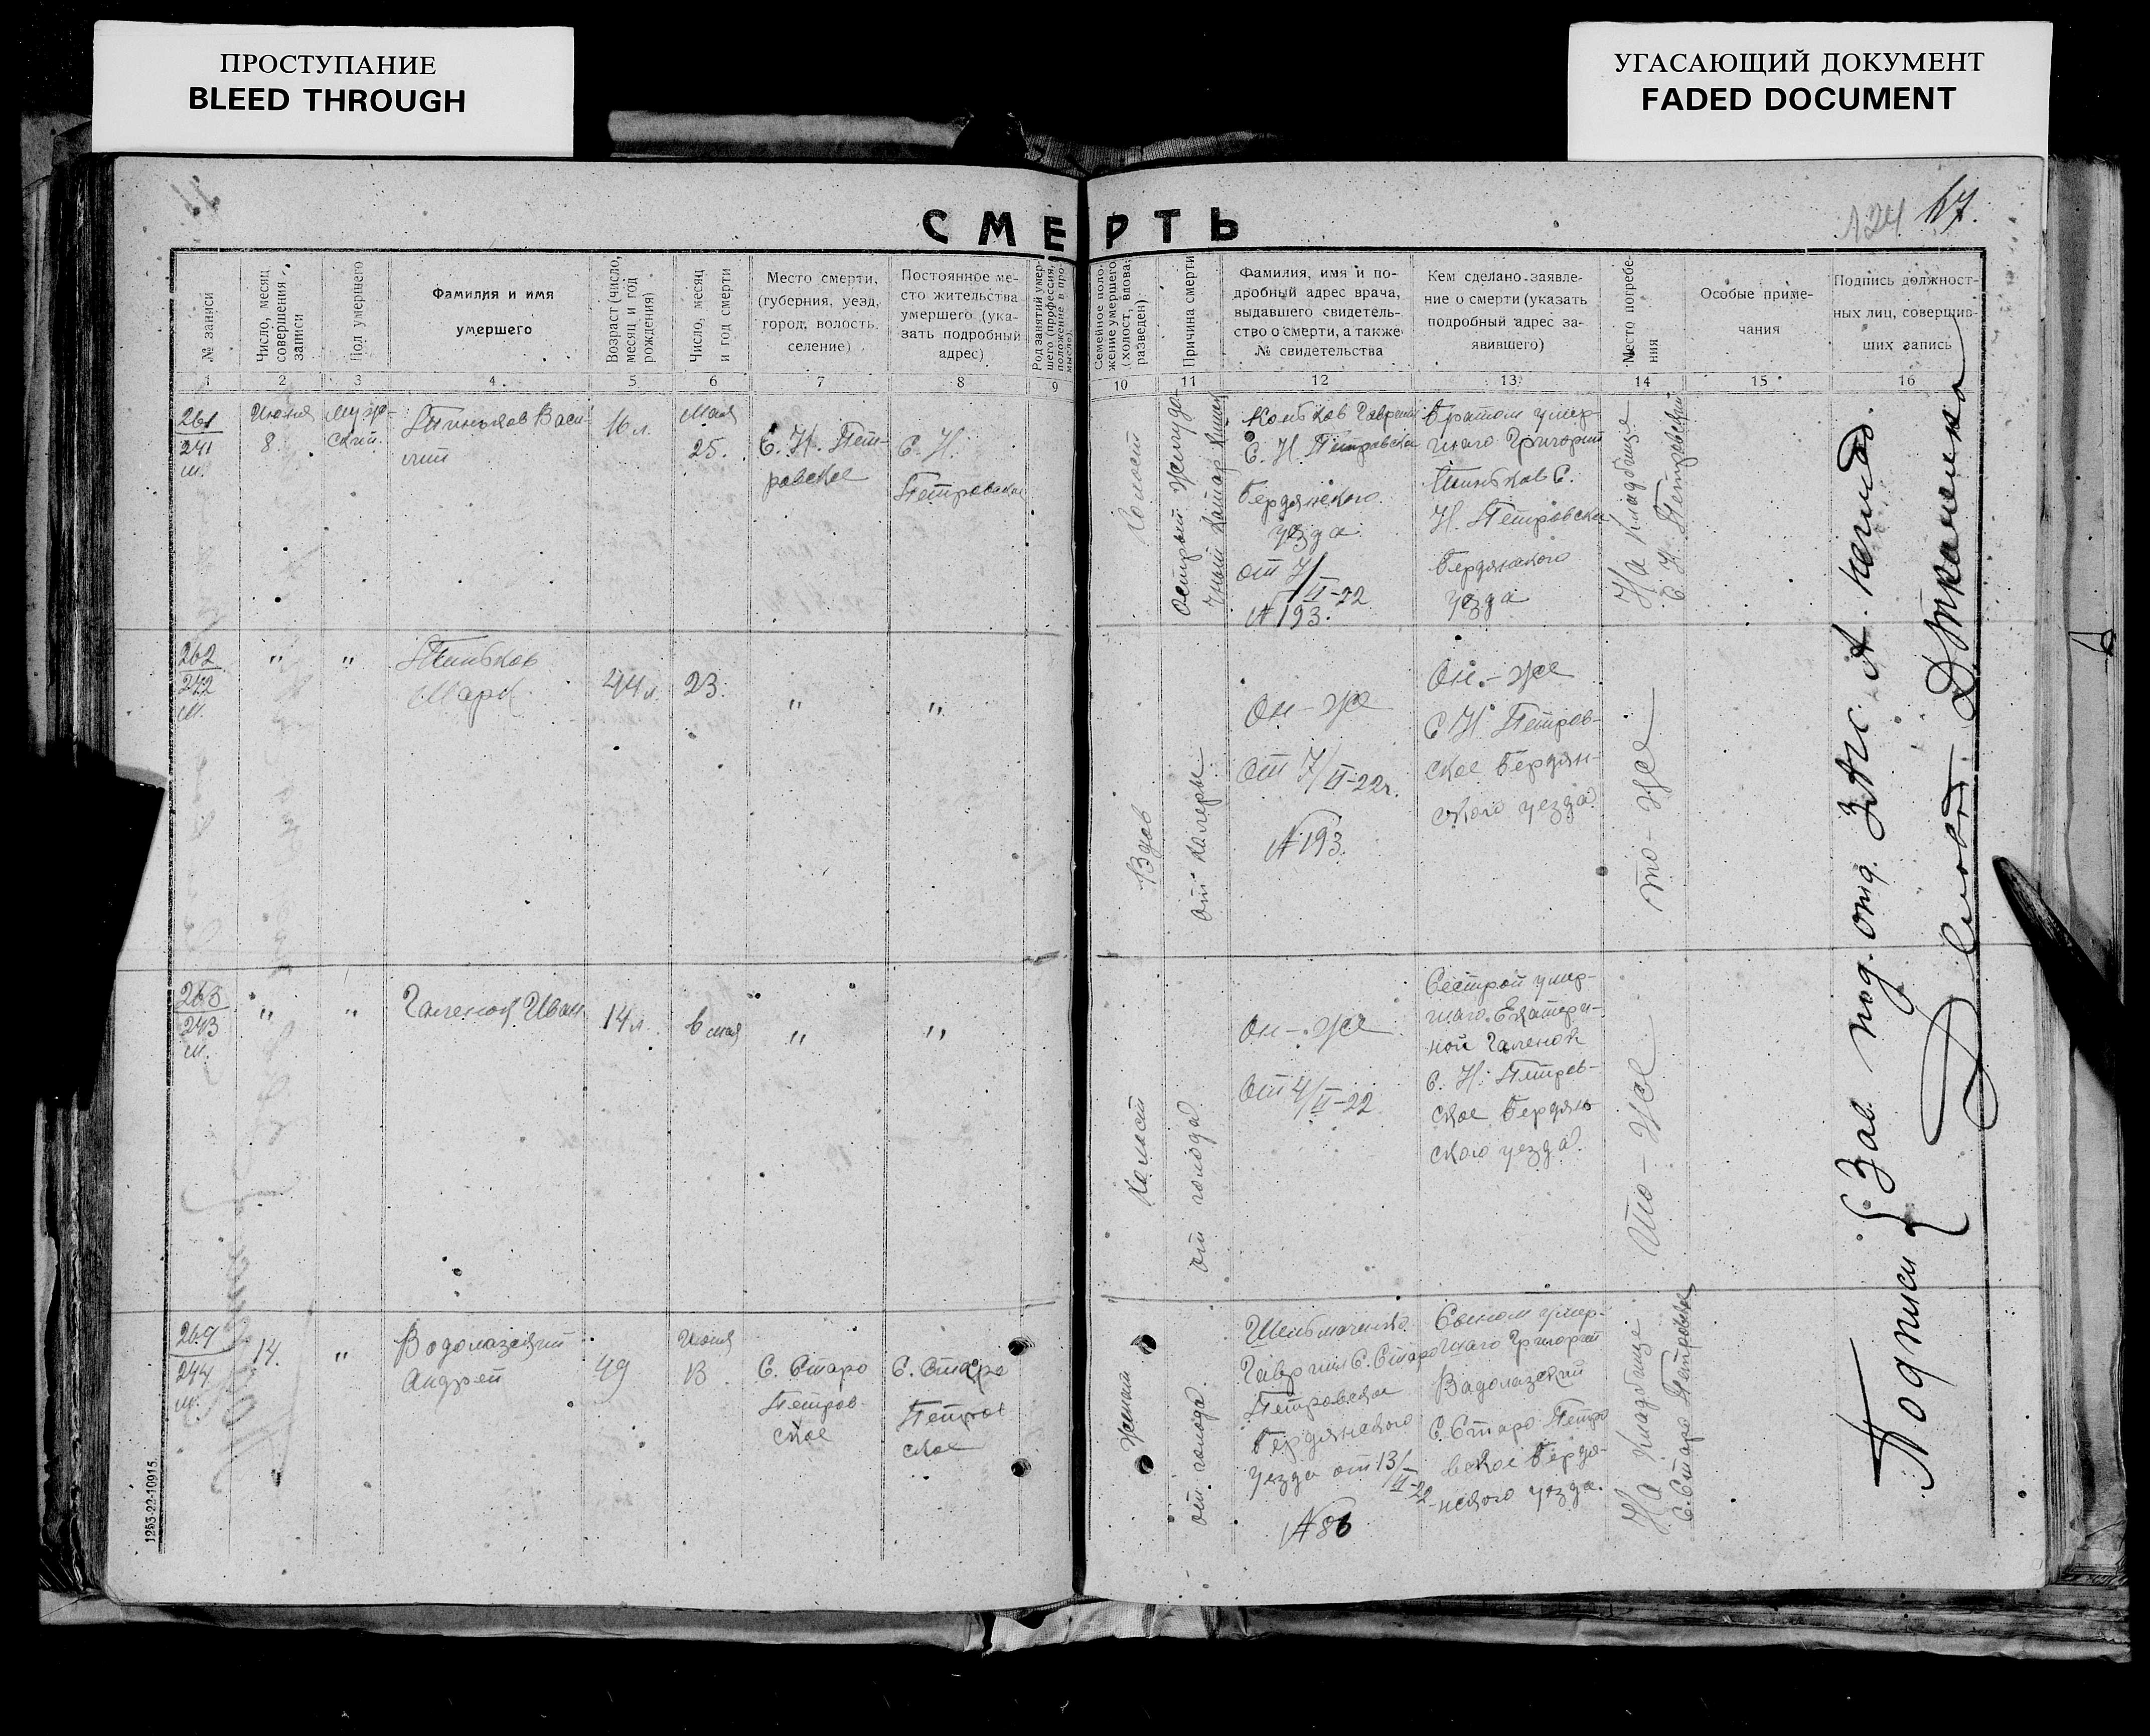 ПРОСТУПАНИЕ
BLEED THROUGH
УГАСАЮЩИЙ ДОКУМЕНТ
FADED DOCUMENT
124 67.
СМЕРТЬ
№ записи
Число, месяц совершения записи
Пол умершего
Фамилия и имя
умершего
Возраст (число, месяц и год рождения)
Число, месяц и год смерти
Место смерти,
(губерния, уезд,
город, волость,
селение)
Постоянное ме-
сто жительства
умершего (ука-
зать подробный
адрес)
Род занятий умер-
шего (профессия,
положение в про-
мысле).
Семейное поло-
жение умершего
(холост, вдова,
разведен)
Причина смерти
Фамилия, имя и по-
дробный адрес врача,
выдавшего свидетель-
ство о смерти, а также
№ свидетельства
Кем сделано заявле-
ние о смерти (указать
подробный адрес за-
явившего)
Место погребе-
ния
Особые приме-
чания
Подпись должност-
ных лиц, совершив-
ших запись
1 2 3 4 5 6 7 8 9 10 11 12 13 14 15 16
261
241
м.
Июня
8.
муж-
ский.
Васи-
лий
16 л.
Мая
25.
С. Н. Пет-
ровское
С. Н.
Петровское
Холост
Острый желудо
чный катар кишек
Гаврил
С. Н. Петровское
Бердянского
уезда
от 7/VI-22
№ 193.
Братом умер-
шаго Григорий
С.
Н. Петровское
Бердянского
уезда
На кладбище
С. Н. Петровский
262
242
м.
" "
Марк
44 л.
23.
" "
Вдов
от халеры
Он-же
от 7/VI-22г.
№ 193.
Он-же
С Н. Петров-
ское Бердян-
ского уезда
то-же
263
243
м.
" "
Галенок Иван
14 л.
6 мая
" "
Халост
от голода
Он-же
от 4/VI-22
Сестрой умер-
шаго Екатери-
ной Галенок
С. Н. Петров-
ское Бердян
ского уезда.
то-же
264
244
м.
14.
"
Водолазский
Андрей
49
Июня
13
С. Старо
Петров-
ское
С. Старо
Петров
ское
Женат
от голода.
Гаврил С. Старо
Петровское
Бердянского
уезда от 13/VI-22
№ 86
Сыном умер-
шаго Григорий
Вадолазский
С. Старо Петро
вское Бердя-
нского уезда.
На кладбище
С. Старо Петровское
Подписи { Зав. под. отд. ЗАГС А.
Делов. Д. Ткаченко
1253-22-10915.